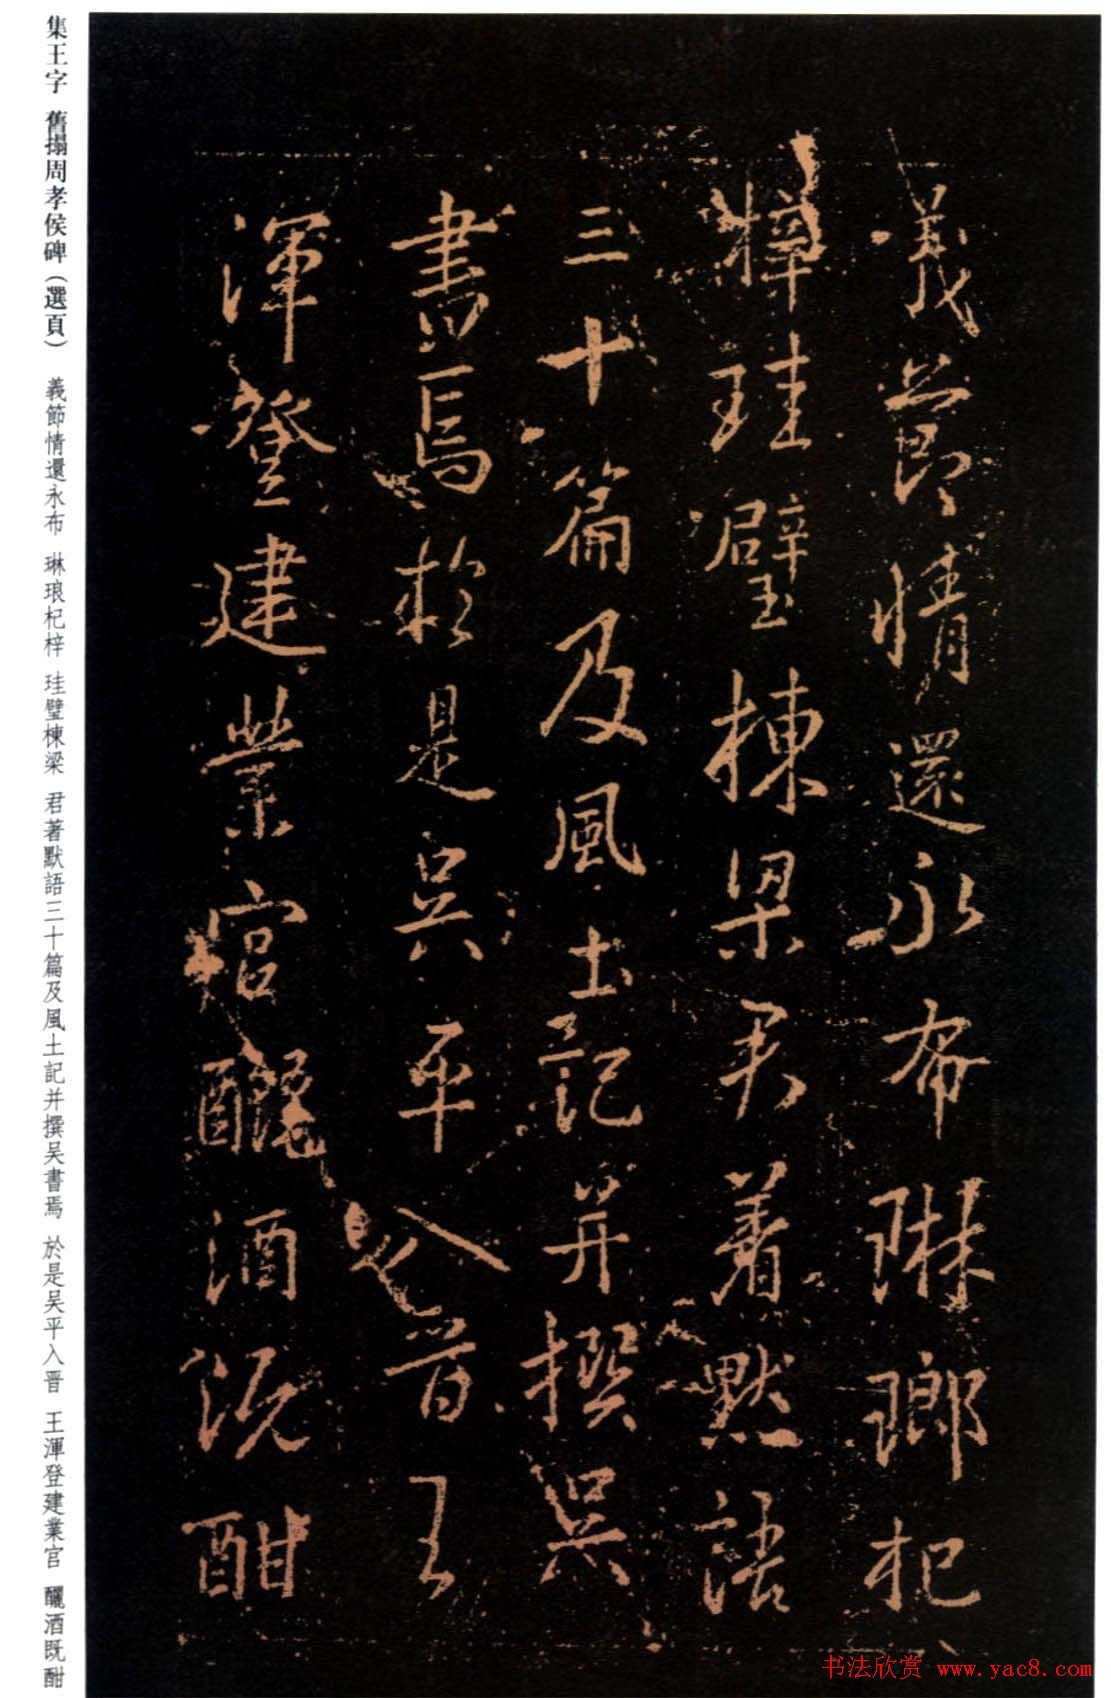 義節情還永布琳瑯杞
梓珪璧棟梁君著默語
三十篇及風土記并撰吳
書焉於是吳平入晉王
渾登建業宮釃酒既酣
集王字 舊搨周孝侯碑（選頁） 義節情還永布 琳琅杞梓 珪璧棟梁 君著默語三十篇及風土記并撰吴書焉 於是吴平入晋 王渾登建業官 釃酒既酣
书法欣赏 www.yac8.com